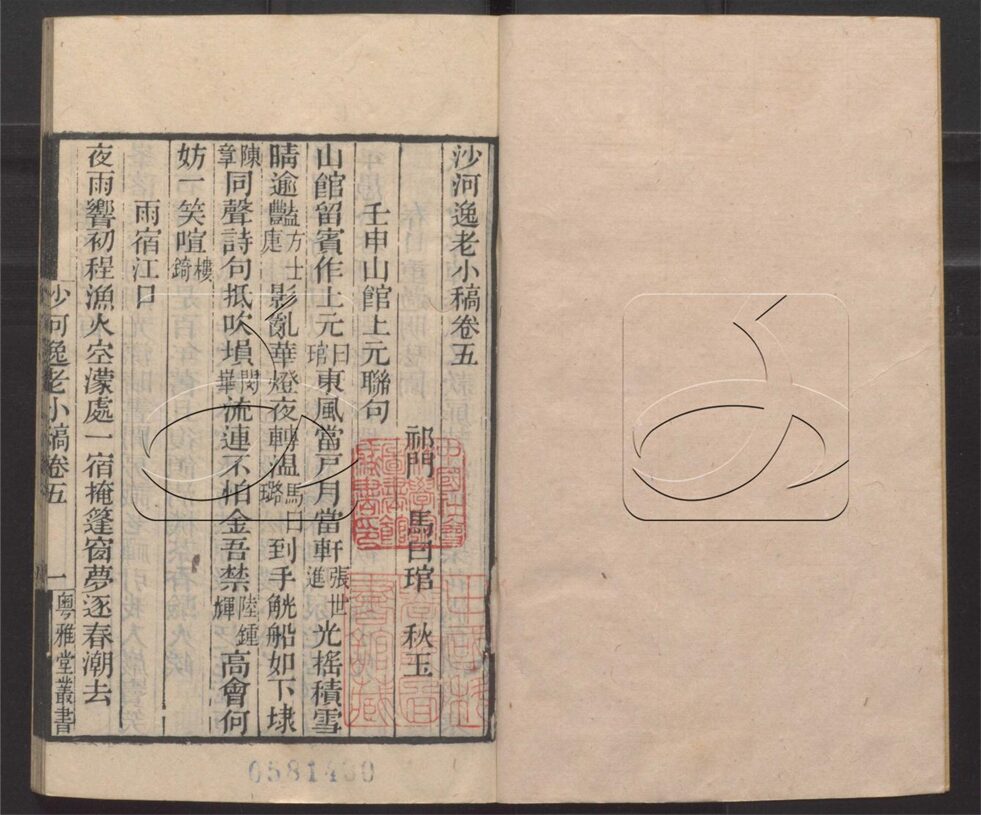 沙河逸老小稿卷五
祁門　馬曰琯　秋玉
壬申山館上元聯句
山館留賓作上元曰琯東風當戶月當軒張世進光搖積雪
晴逾豔方士庹影亂華燈夜轉溫馬曰璐到手觥船如下埭
陳章同聲詩句抵吹塤閔華流連不怕金吾禁陸鍾輝高會何
妨一笑喧樓錡
雨宿江口
夜雨響初程漁火空濛處一宿掩篷窗夢逐春潮去
沙河逸老小稿卷五　一　粵雅堂叢書
0581430